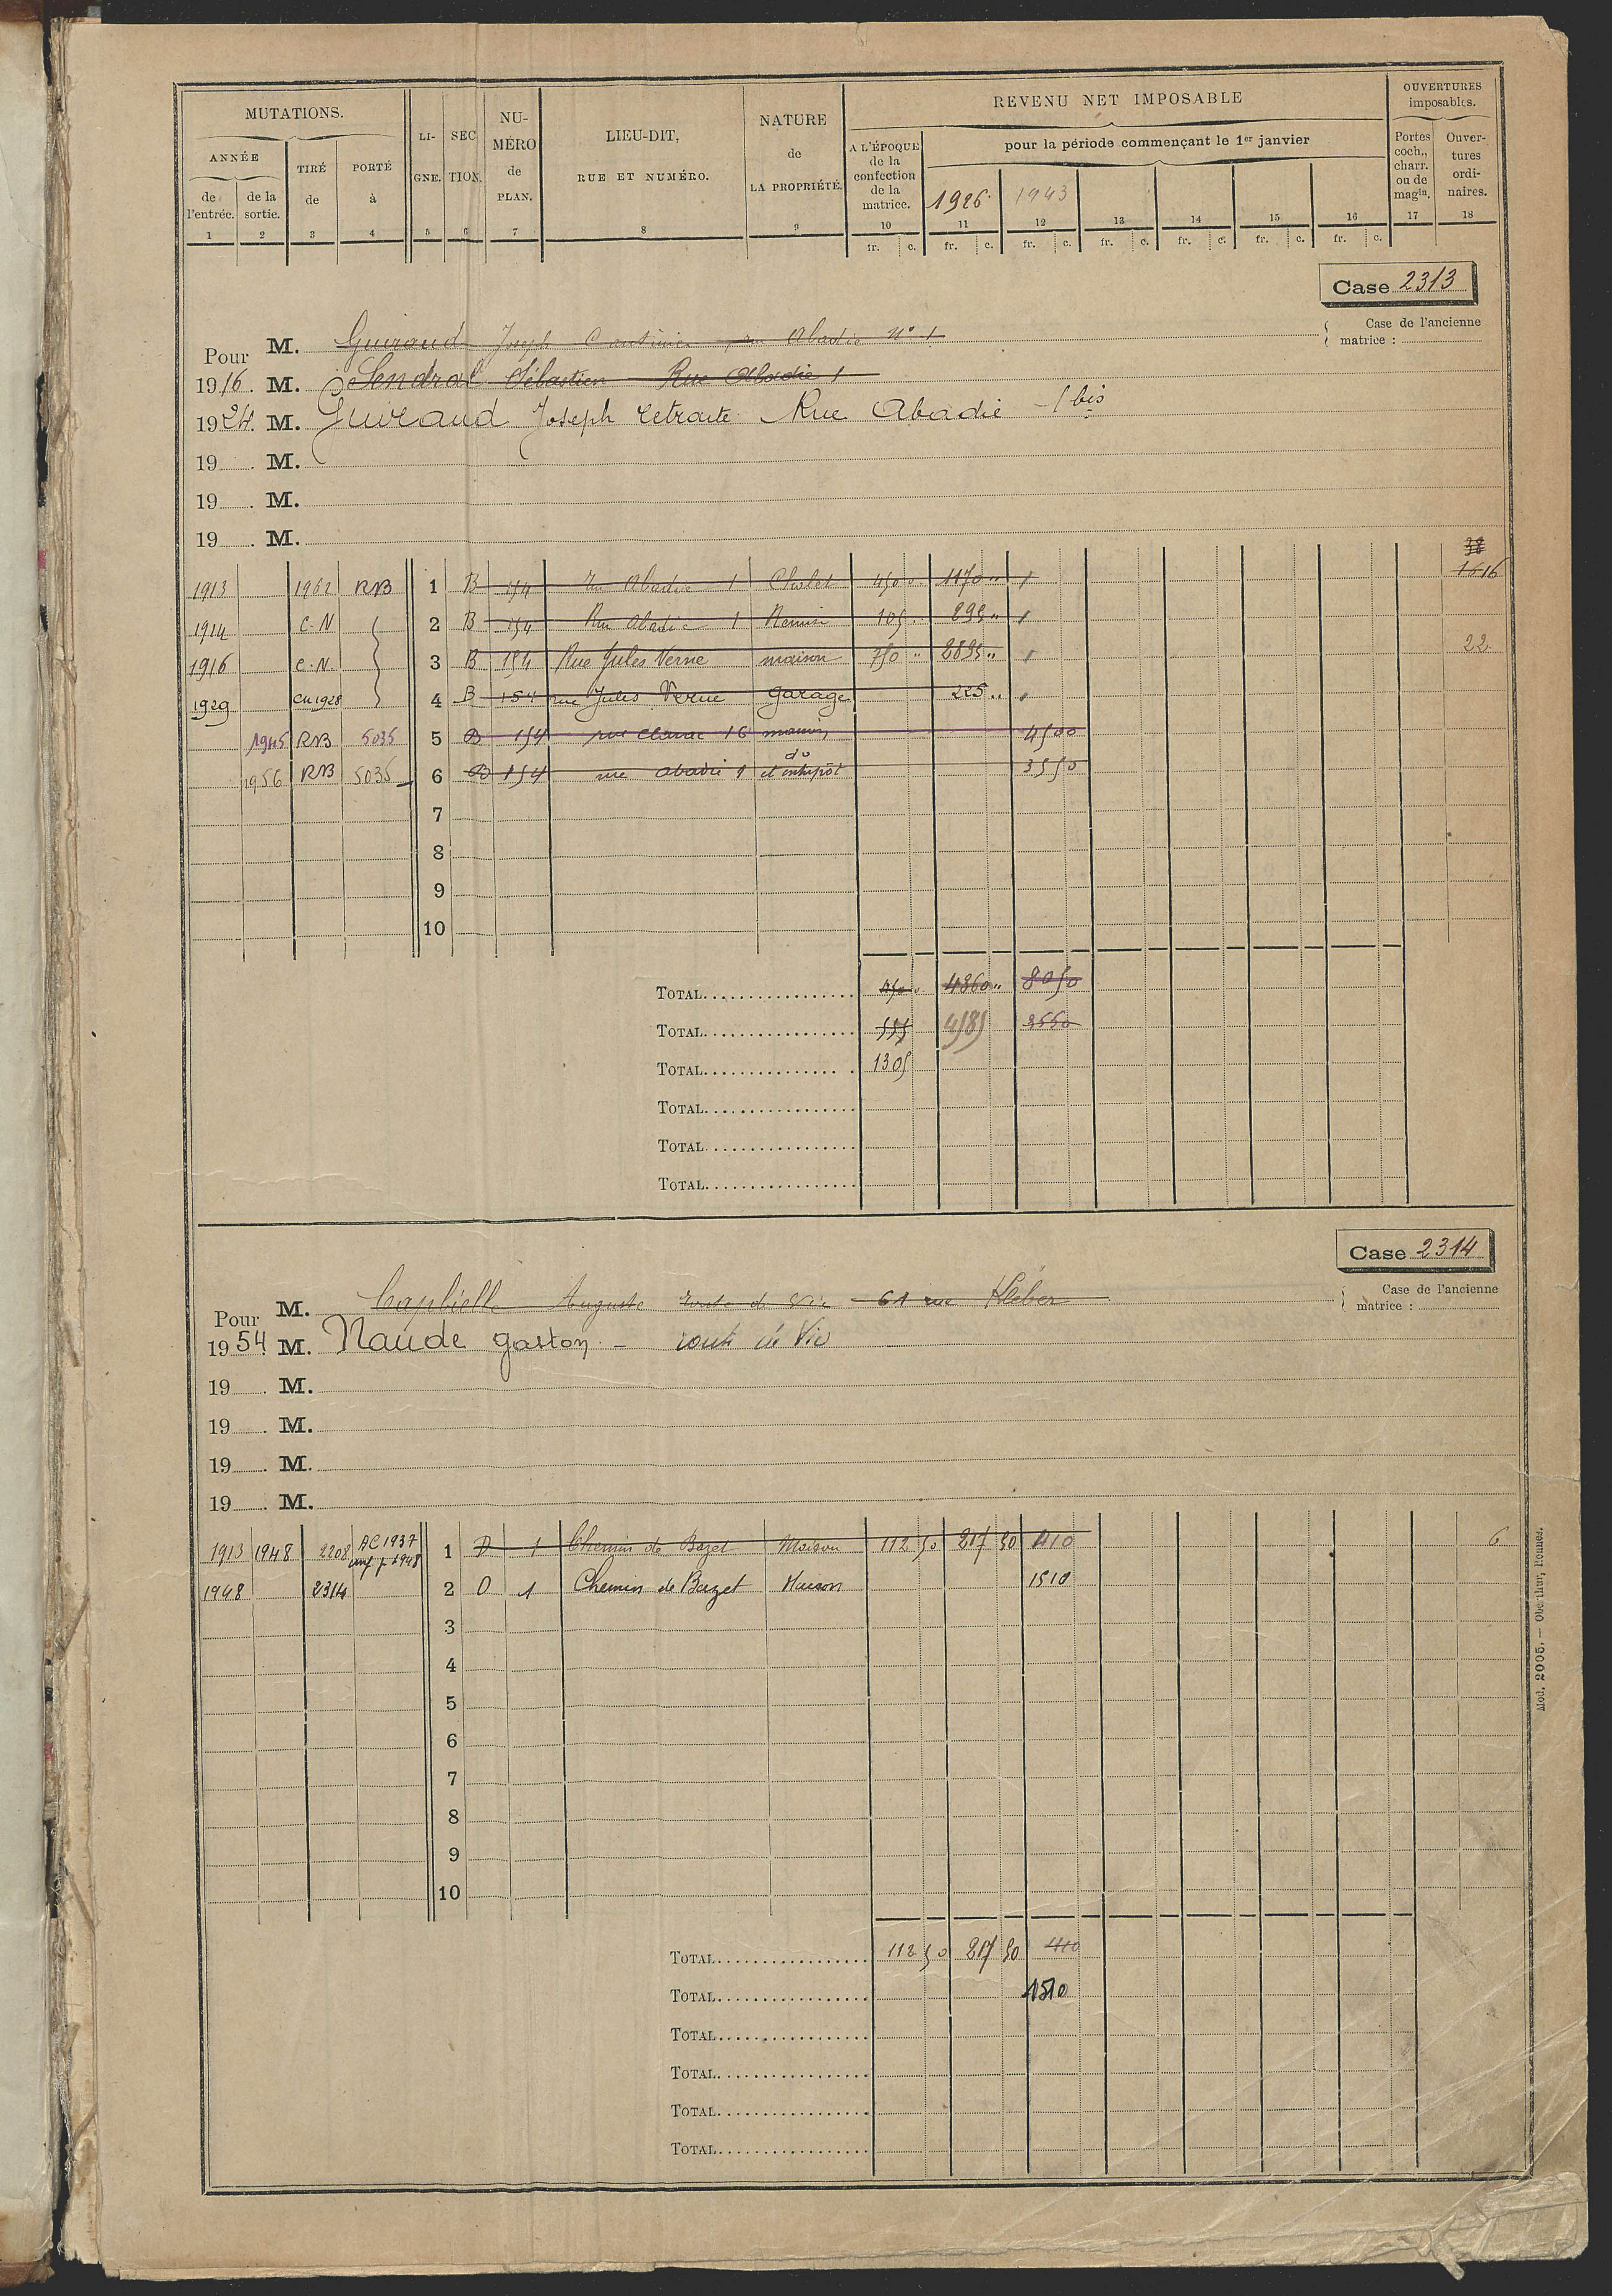 MUTATIONS.
ANNÉE
de l'entrée. 1
de la sortie. 2
TIRÉ de 3
PORTÉ à 4
LI-GNE. 5
SEC TION. 6
NU-MÉRO de PLAN. 7
LIEU-DIT, RUE ET NUMÉRO. 8
NATURE de LA PROPRIÉTÉ. 9
REVENU NET IMPOSABLE
A L'ÉPOQUE de la confection de la matrice. 10
pour la période commençant le 1er janvier
1926. 11
1943 12
13 14 15 16
fr. c. fr. c. fr. c. fr. c. fr. c. fr. c. fr. c.
OUVERTURES imposables.
Portes coch., charr. ou de magin. 17
Ouver-tures ordi-naires. 18
Case 2313
Case de l'ancienne matrice :
Pour M. Guiraud Joseph rue Abadie N° 1
1916. M. Sendral Sébastien Rue Abadie 1
1924. M. Guiraud Joseph retraité Rue Abadie 1 bis
19 . M.
19 . M.
19 . M.
1913 1962 RNB 1 B 154 Rue Abadie 1 Chalet 450 " 1170 " 16 16
1914 C.N 2 B 154 Rue Abadie 1 Remise 105 " 295 "
1916 C.N 3 B 154 Rue Jules Verne maison 750 " 2895 " 22
1929 CN 1928 4 B 154 rue Jules Verne garage 225 "
1945 RNB 5035 5 B 154 rue 16 maison 4500
1956 RNB 5035 6 B 154 rue abadie 1 do et entrepôt 3550
7
8
9
10
TOTAL 450 " 4360 " 8050
TOTAL 555 4585 3550
TOTAL 1305
TOTAL
TOTAL
TOTAL
Case 2314
Case de l'ancienne matrice :
Pour M. Capbielle Auguste route de Vic 61 rue Kléber
1954. M. Naude gaston – route de Vic
19 . M.
19 . M.
19 . M.
19 . M.
1913 1948 2208 AC 1937 1948 1 D 1 Chemin de Bazet Maison 112 50 217 50 410 6
1948 2314 2 D 1 Chemin de Bazet Maison 1510
3
4
5
6
7
8
9
10
TOTAL 112 50 217 50 410
TOTAL 1510
TOTAL
TOTAL
TOTAL
TOTAL
Mod. 2005. — Oberthur, Rennes.